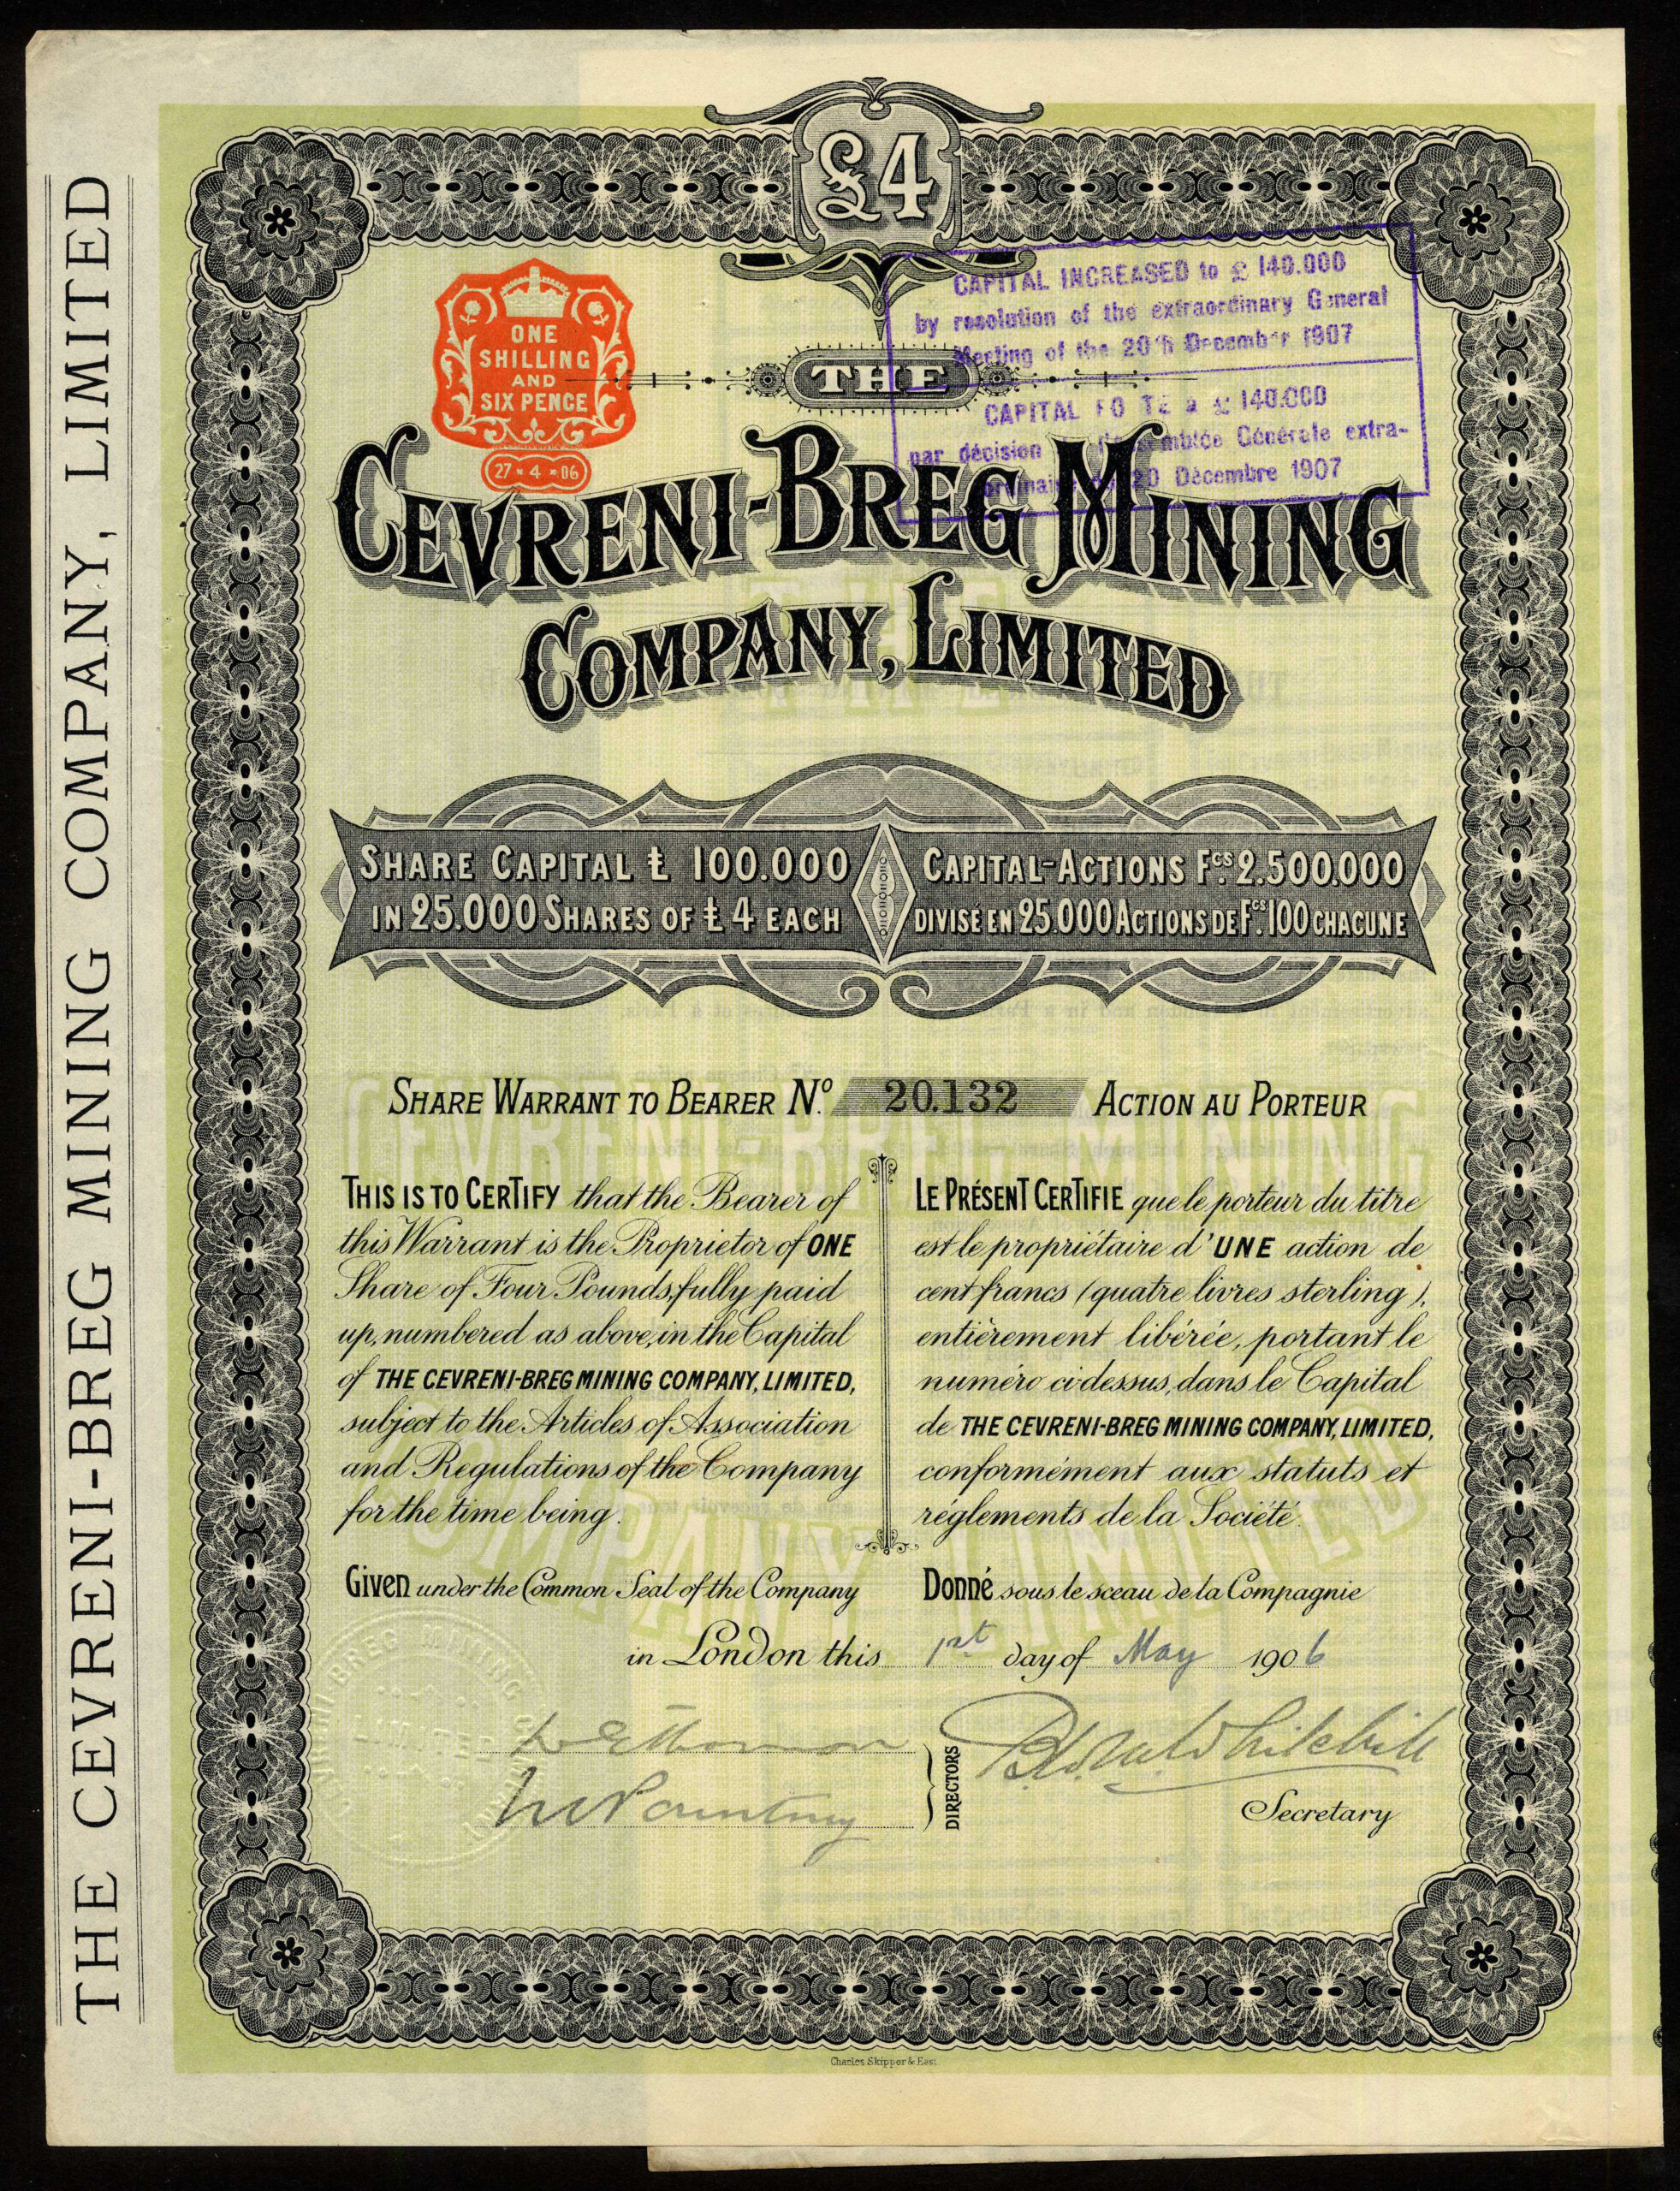 THE CEVRENI-BREG MINING COMPANY, LIMITED
£4
ONE
SHILLING
AND
SIX PENCE
27 - 4 - 06
CAPITAL INCREASED to £ 140.000
by resolution of the extraordinary General
Meeting of the 20th December 1907
CAPITAL £ 140.000
par décision Générale extra-
20 Décembre 1907
THE
CEVRENI-BREG MINING
COMPANY, LIMITED
SHARE CAPITAL £ 100.000
IN 25.000 SHARES OF £ 4 EACH
CAPITAL-ACTIONS Fcs 2.500.000
DIVISÉ EN 25.000 ACTIONS DE Fcs 100 CHACUNE
SHARE WARRANT TO BEARER No. 20.132 ACTION AU PORTEUR
THIS IS TO CERTIFY that the Bearer of
this Warrant is the Proprietor of ONE
Share of Four Pounds, fully paid
up, numbered as above, in the Capital
of THE CEVRENI-BREG MINING COMPANY, LIMITED,
subject to the Articles of Association
and Regulations of the Company
for the time being.
LE PRÉSENT CERTIFIE que le porteur du titre
est le propriétaire d'UNE action de
cent francs (quatre livres sterling),
entièrement libérée, portant le
numéro ci-dessus, dans le Capital
de THE CEVRENI-BREG MINING COMPANY, LIMITED,
conformément aux statuts et
règlements de la Société.
Given under the Common Seal of the Company
Donné sous le sceau de la Compagnie
in London this 1st day of May 1906
DIRECTORS
Secretary
Charles Skipper & East